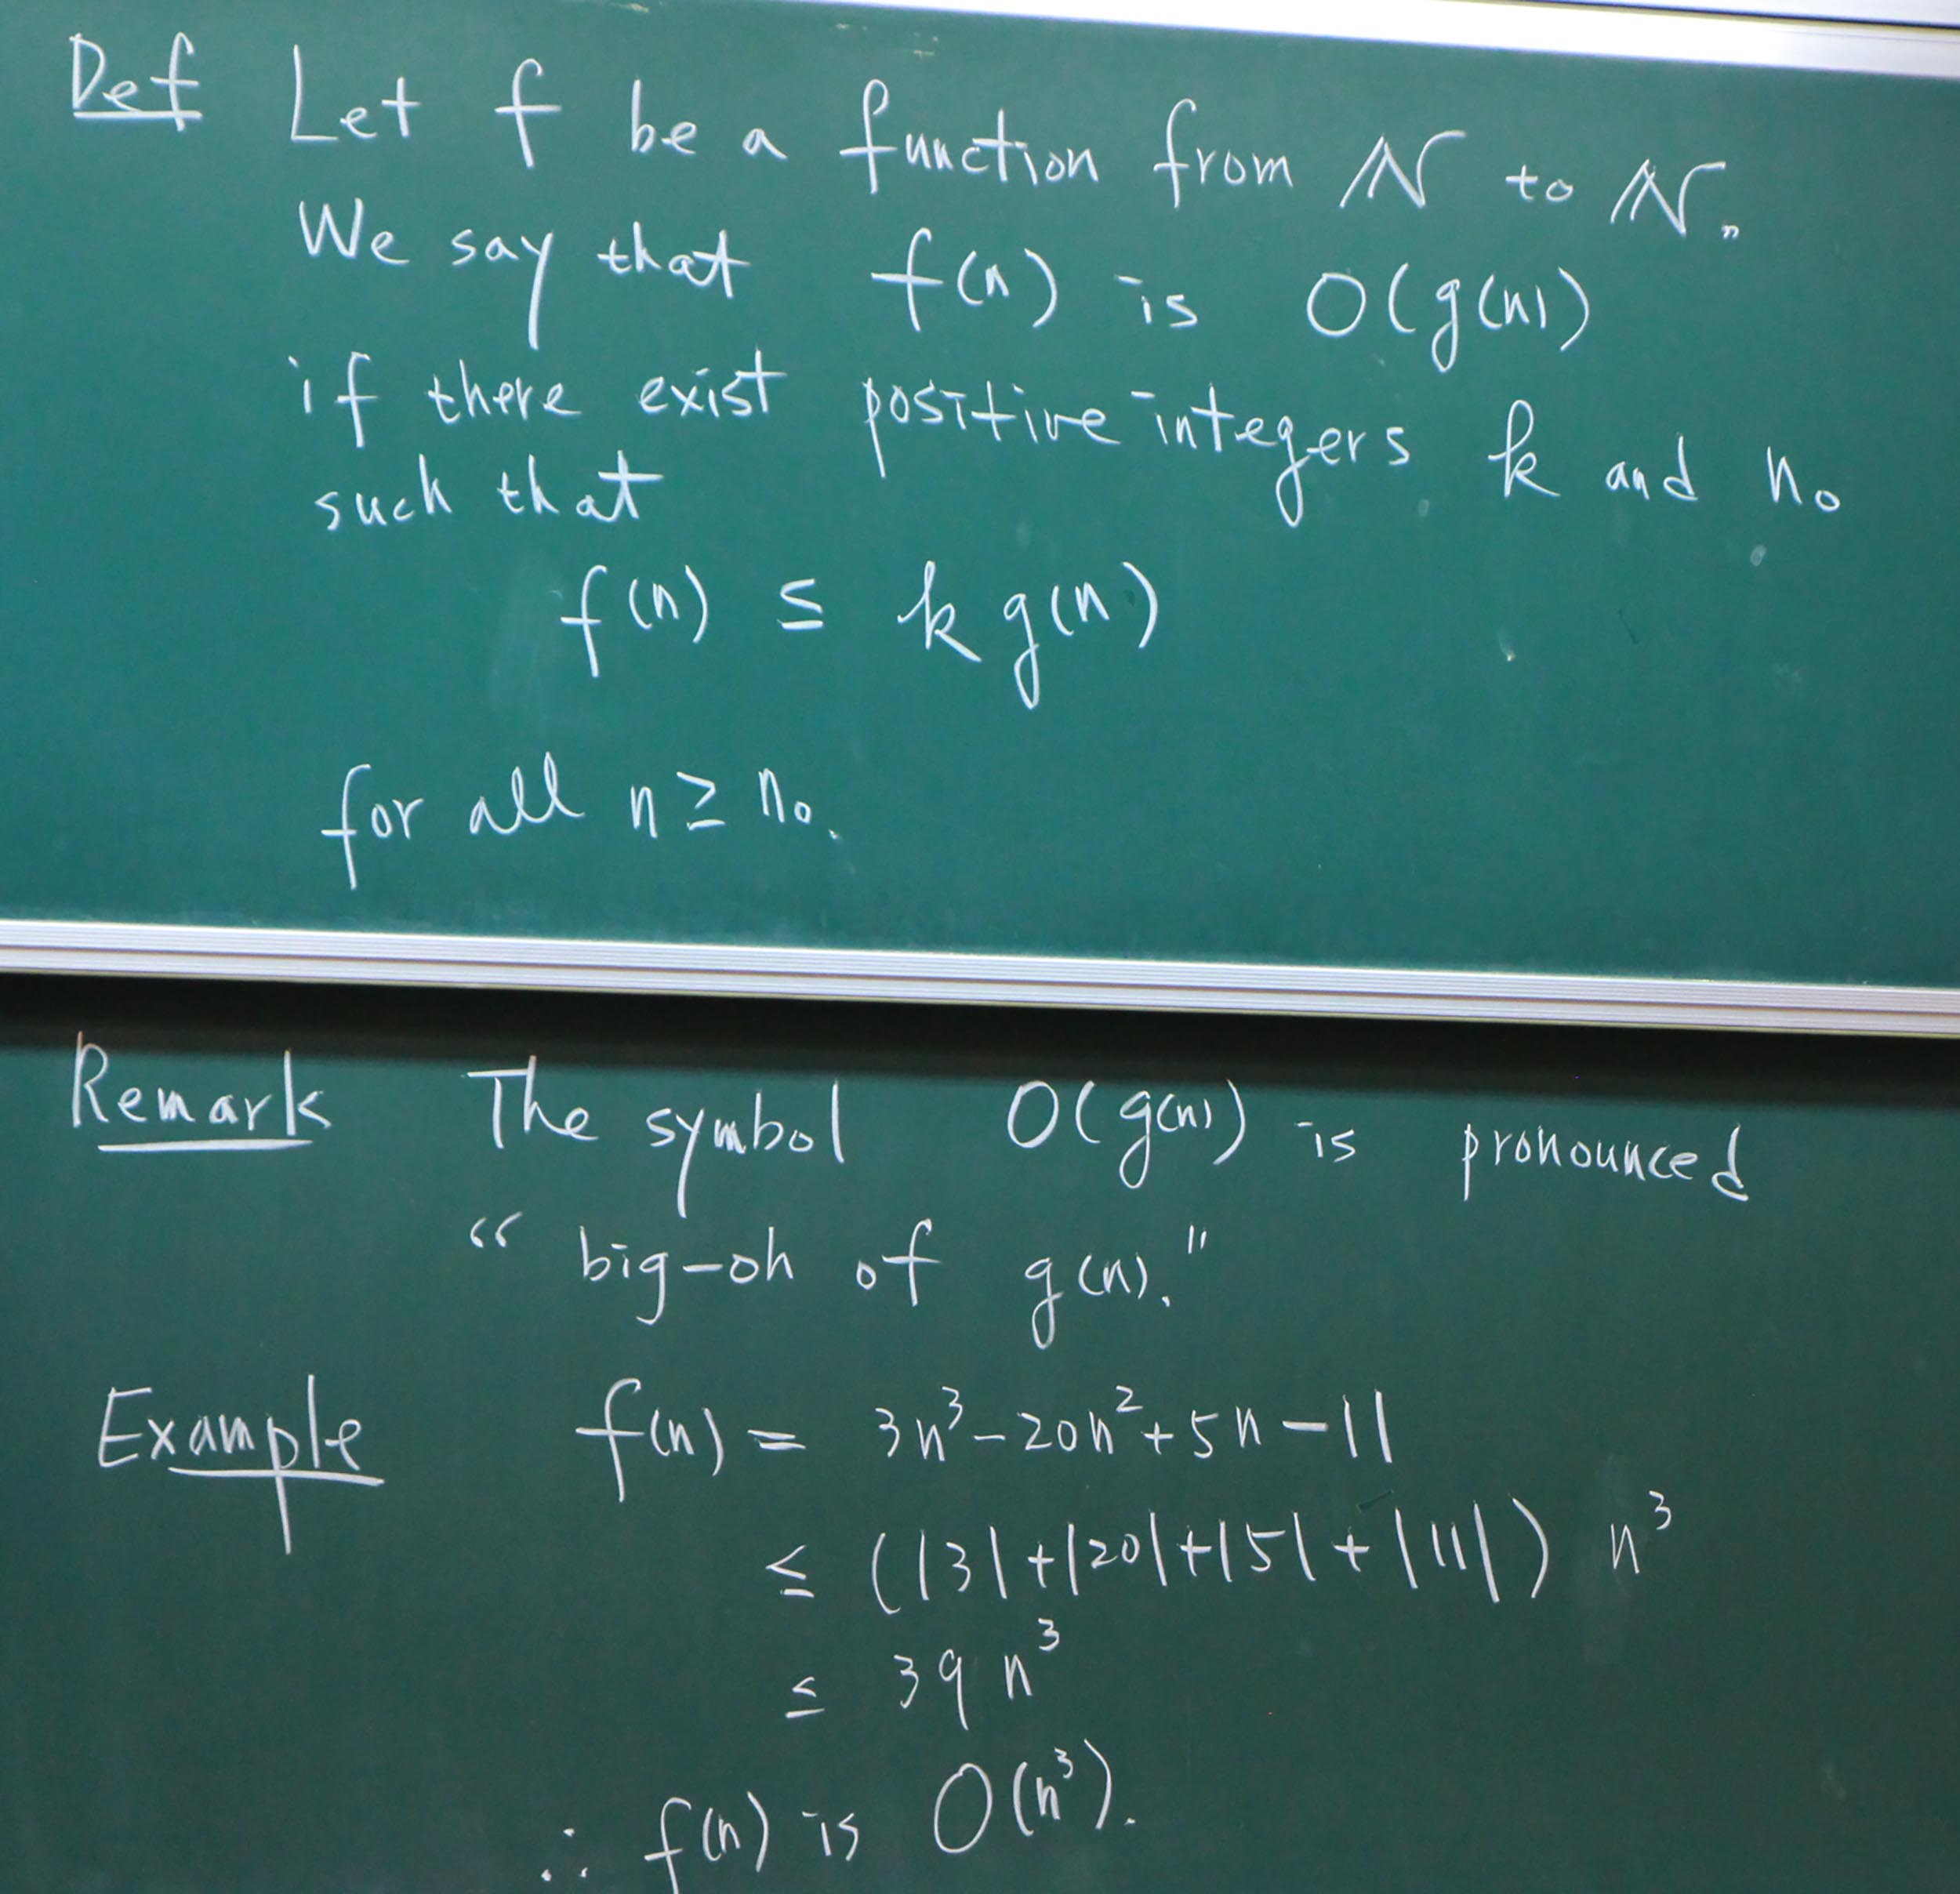 Def Let f be a function from ℕ to ℕ.
We say that f(n) is O(g(n))
if there exist positive integers k and n₀
such that
f(n) ≤ k g(n)
for all n ≥ n₀.
Remark The symbol O(g(n)) is pronounced
“big-oh of g(n).”
Example f(n) = 3n³ - 20n² + 5n - 11
≤ (|3|+|20|+|5|+|11|) n³
≤ 39 n³
∴ f(n) is O(n³).